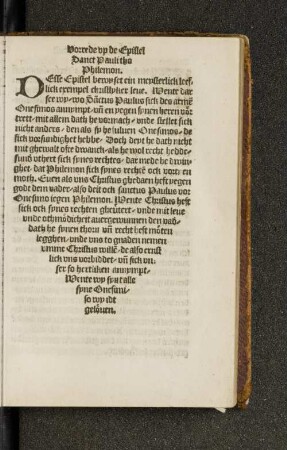 Vorrede vp de Epistel
Sanct Pauli tho
Philemon.
DEsse Epistel bewyset ein meysterlick leeff-
lick exempel christlyker leue. Wente dar
see wy, wo Sanctus Paulus sick des armē
Onesimos annympt, vñ en yegen synen heren vor-
trett, mit allem dath he vormach, vnde stellet sick
nicht anders, den als sy he suluen Onesimos, de
sick vorsundighet hebbe. Doch deyt he dath
nicht mit ghewalt
sundt vthert sick synes rechtes, dar mede he dwin-
ghet, dat Philemon sick synes rechtē ock vort
moth. Euen als vns Christus ghedaen heft yegen
godt den vader, also deit ock sanctus Paulus vor
Onesimo iegen Philemon. Wente Christus heft
sick ock synes rechten gheutert, vnde mit leue
vnde othmödichett auerghewunnen den vad,
dath he synen thorn vñ recht heft möten
legghen, vnde vns to gnaden nemen
vmme Christus willē, de also ernst
lick vns vorbiddet, vñ sick vn-
ser so hertliken annympt,
Wente wy synt alle
syne Onesimi,
so wy idt
gelöuen.